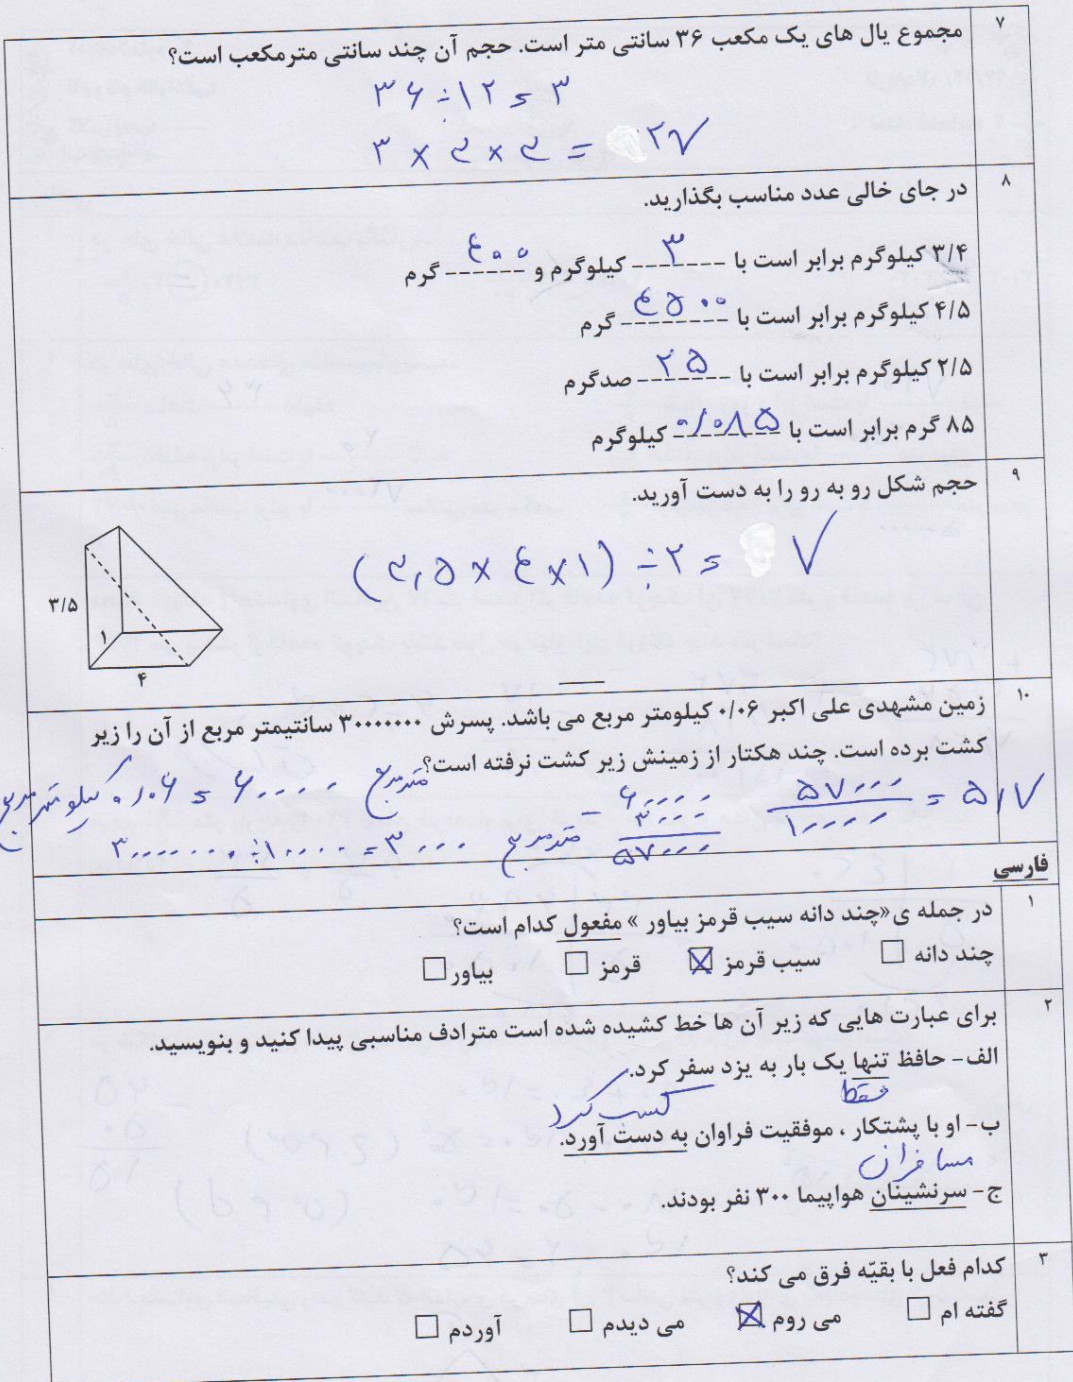 ۷ مجموع یال های یک مکعب ۳۶ سانتی متر است. حجم آن چند سانتی مترمکعب است؟
۳۶ ÷ ۱۲ = ۳
۳ × ۳ × ۳ = ۲۷
۸ در جای خالی عدد مناسب بگذارید.
۳/۴ کیلوگرم برابر است با ۳ کیلوگرم و ۴۰۰ گرم
۴/۵ کیلوگرم برابر است با ۴۵۰۰ گرم
۲/۵ کیلوگرم برابر است با ۲۵ صدگرم
۸۵ گرم برابر است با ۰/۰۸۵ کیلوگرم
۹ حجم شکل رو به رو را به دست آورید.
(۳٫۵ × ۴ × ۱) ÷ ۲ = ۷
۳/۵
۱
۴
۱۰ زمین مشهدی علی اکبر ۰/۰۶ کیلومتر مربع می باشد. پسرش ۳۰۰۰۰۰۰۰ سانتیمتر مربع از آن را زیر
کشت برده است. چند هکتار از زمینش زیر کشت نرفته است؟
کیلو متر مربع ۰/۰۶ = ۶۰۰۰۰ متر مربع
۳۰۰۰۰۰۰۰ ÷ ۱۰۰۰۰ = ۳۰۰۰ متر مربع
۶۰۰۰۰ - ۳۰۰۰
۵۷۰۰۰
۵۷۰۰۰
۱۰۰۰۰ = ۵٫۷
فارسی
۱ در جمله ی«چند دانه سیب قرمز بیاور » مفعول کدام است؟
چند دانه ☐ سیب قرمز ☒ قرمز ☐ بیاور ☐
۲ برای عبارت هایی که زیر آن ها خط کشیده شده است مترادف مناسبی پیدا کنید و بنویسید.
الف- حافظ تنها یک بار به یزد سفر کرد.
فقط
کسب کرد
ب- او با پشتکار ، موفقیت فراوان به دست آورد.
مسافران
ج- سرنشینان هواپیما ۳۰۰ نفر بودند.
۳ کدام فعل با بقیّه فرق می کند؟
گفته ام ☐ می روم ☒ می دیدم ☐ آوردم ☐